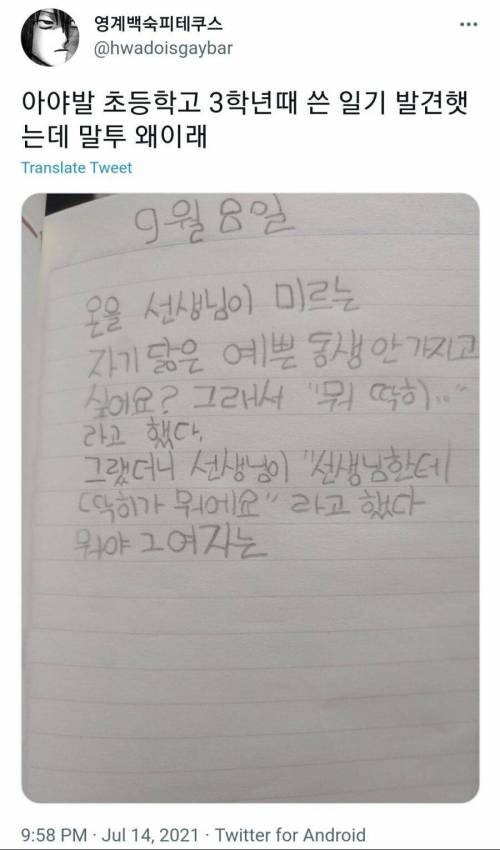 영계백숙피테쿠스
@hwadoisgaybar
아야발 초등학고 3학년때 쓴 일기 발견햇
는데 말투 왜이래
Translate Tweet
9월 8일
온을 선생님이 미르는
자기 닮은 예쁜 동생 안 가지고
싶어요? 그래서 "뭐 딱히..."
라고 했다.
그랬더니 선생님이 "선생님한테
딱히가 뭐에요" 라고 했다
뭐야 그 여자는
9:58 PM · Jul 14, 2021 · Twitter for Android